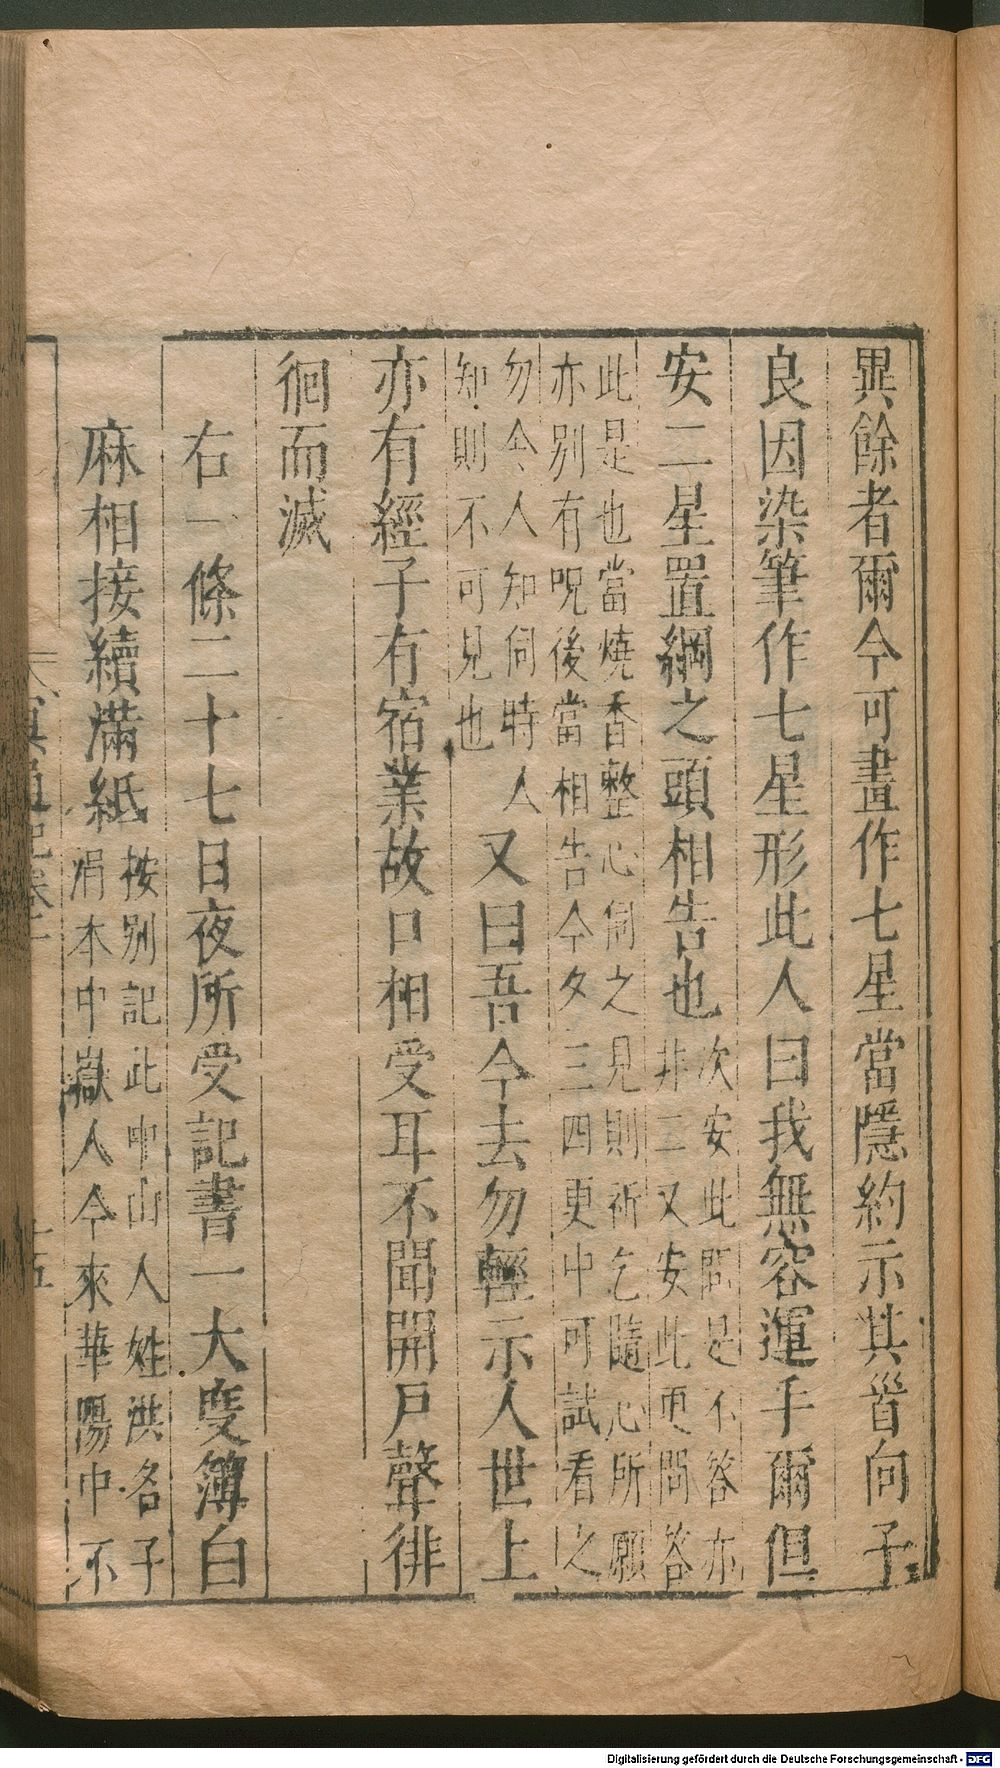 異餘者爾今可畫作七星當隱約示其首向子
良因染筆作七星形此人曰我無容運手爾但
安二星置綱之頭相告也
次安此問是不答亦
非二又安此更問答
此是也當燒香整心伺之見則祈乞隨心所願
亦别有呪後當相告今夕三四更中可試看之
勿令人知伺時人
知則不可見也
又曰吾今去勿輕示人世上
亦有經子有宿業故口相受耳不聞開戸聲徘
徊而滅
右一條二十七日夜所受記書一大度簿白
麻相接續滿紙
按别記此中山人姓洪名子
涓本中嶽人今來華陽中不
真通記卷二
十五
Digitalisierung gefördert durch die Deutsche Forschungsgemeinschaft - DFG